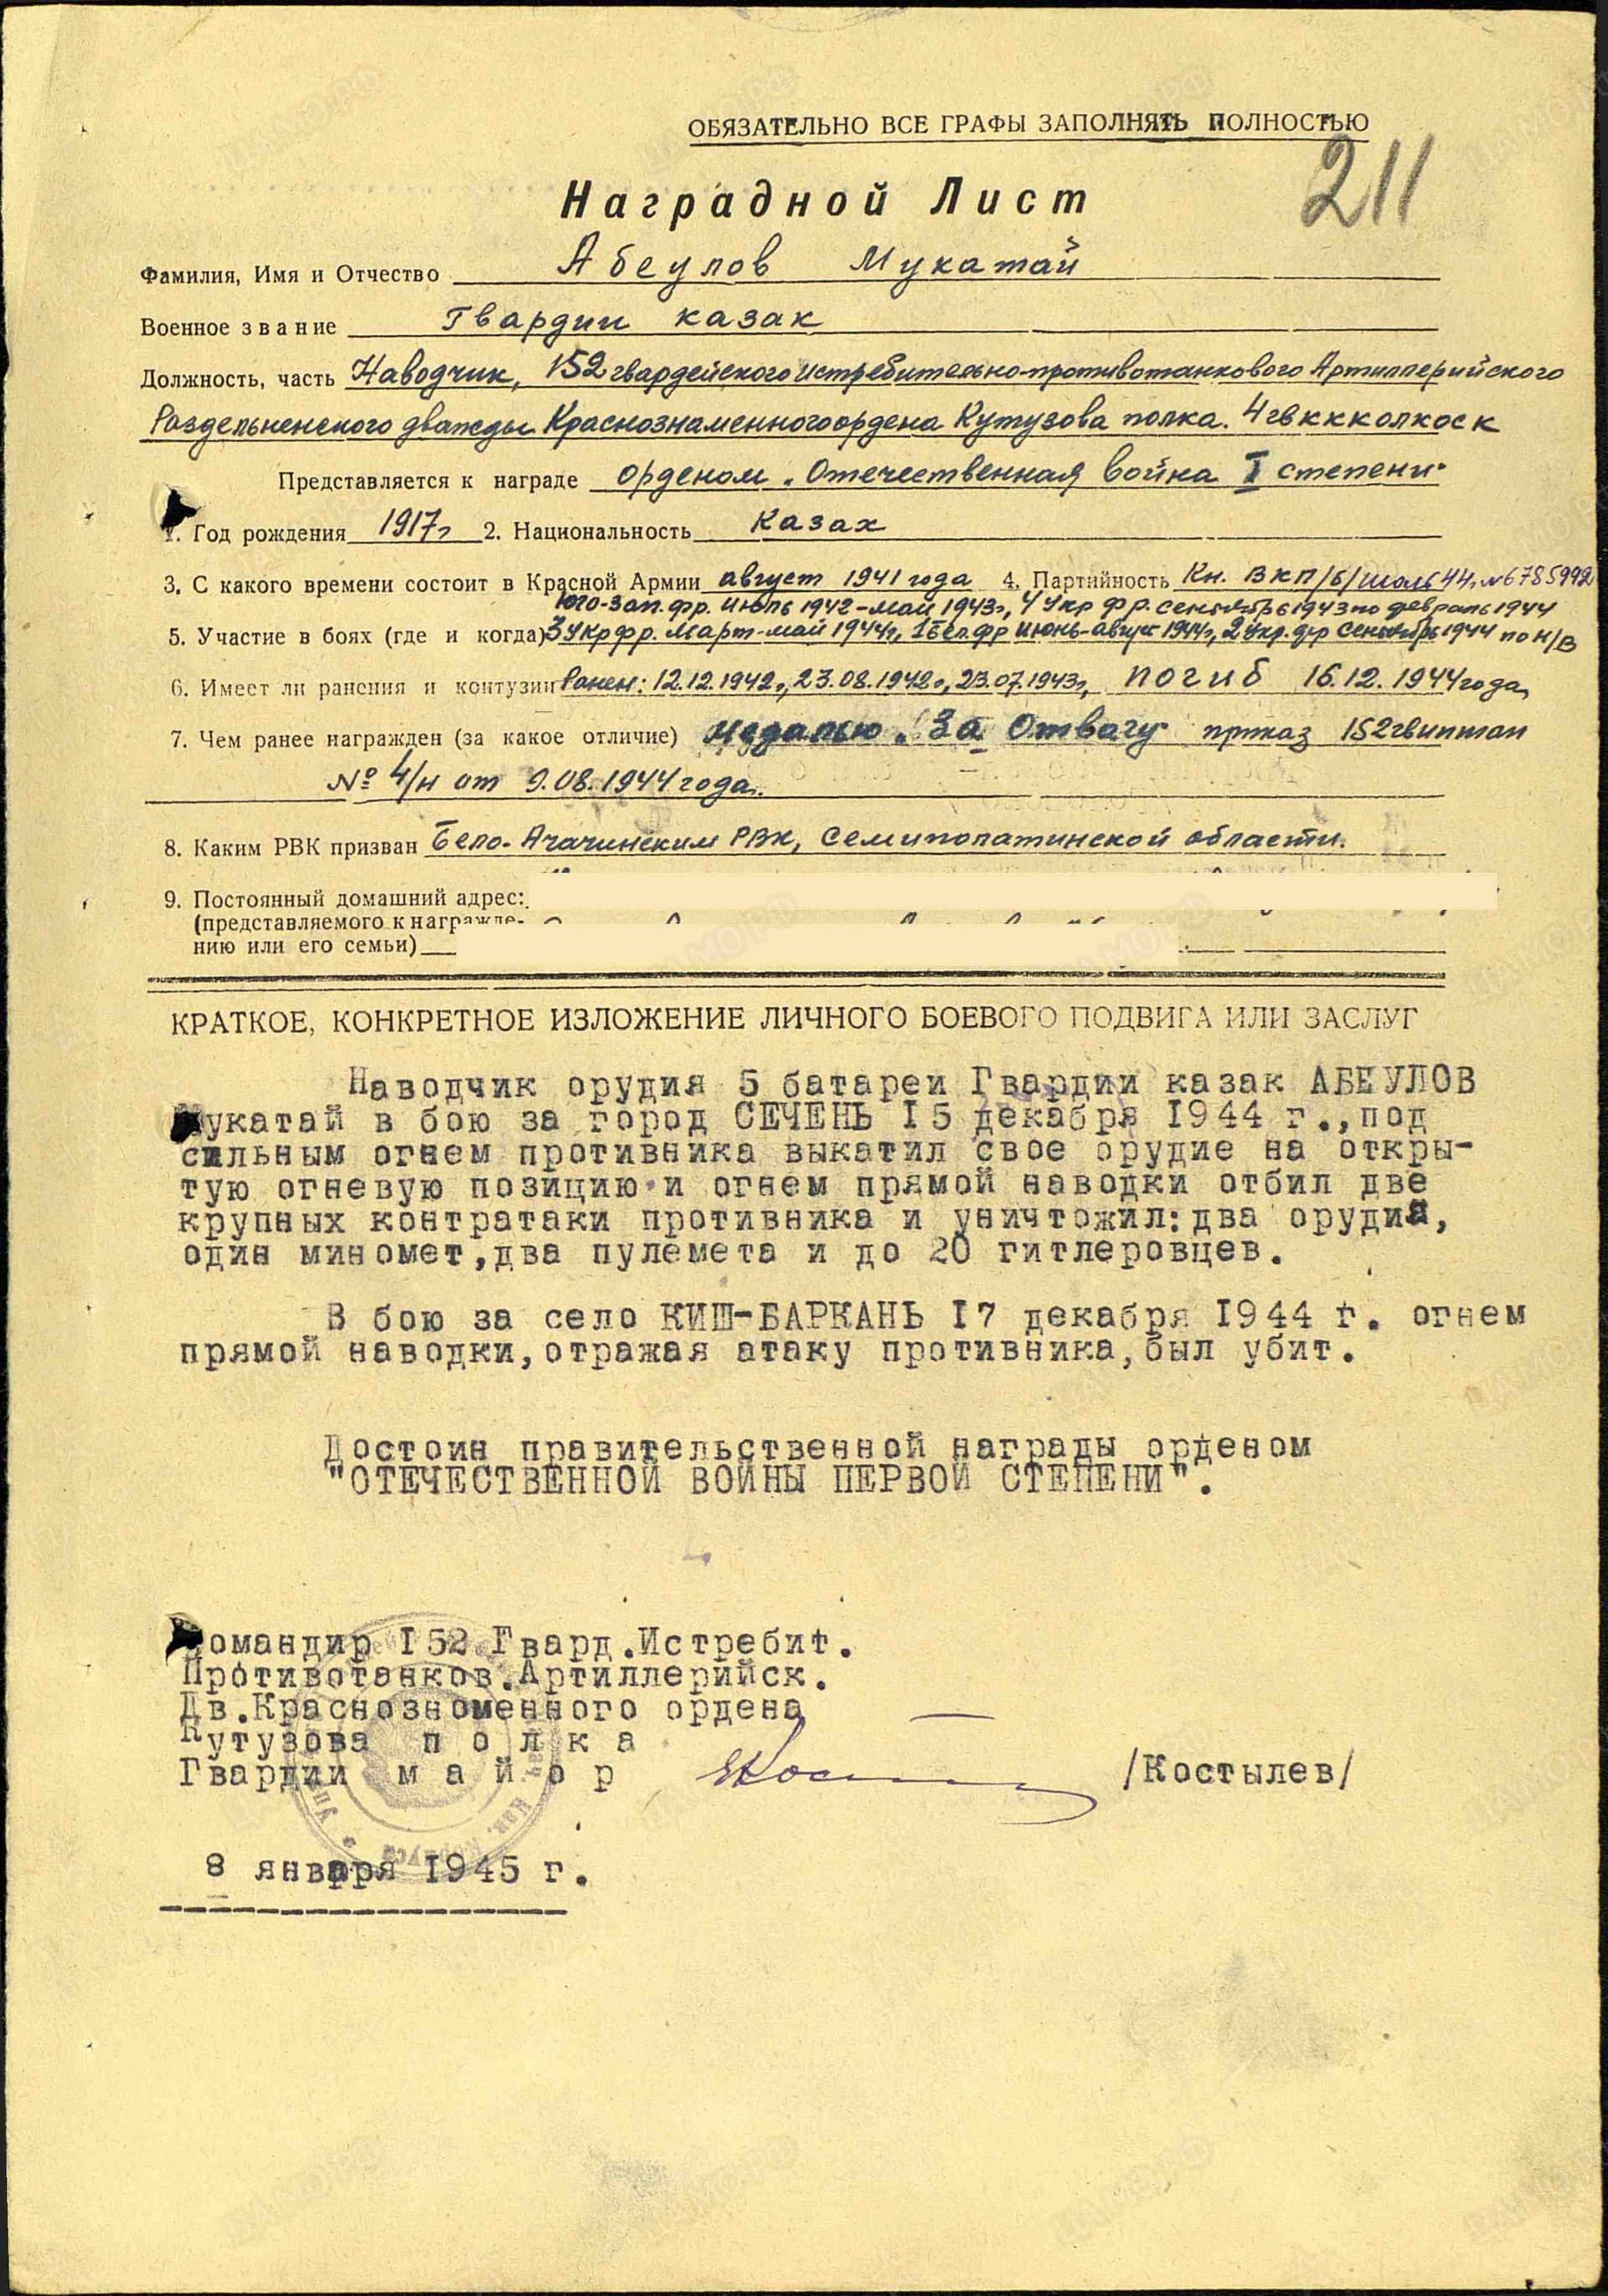 ОБЯЗАТЕЛЬНО ВСЕ ГРАФЫ ЗАПОЛНЯТЬ ПОЛНОСТЬЮ
211
Наградной Лист
Фамилия, Имя и Отчество Абеулов Мукатай
Военное звание Гвардии казак
Должность, часть Наводчик, 152 гвардейского истребительно-противотанкового Артиллерийского
Раздельненского дважды Краснознаменного ордена Кутузова полка. 4 гв ккк
Представляется к награде орденом „Отечественная война I степени"
1. Год рождения 1917г 2. Национальность Казах
3. С какого времени состоит в Красной Армии август 1941 года 4. Партийность Кн. ВКП/б/ июль 44г. №6785992
Юго-Зап. фр. июль 1942-май 1943г, 4 Укр фр. сентябрь 1943 по февраль 1944
5. Участие в боях (где и когда) 3 Укр фр. Март-май 1944г, 1 Бел фр июнь-август 1944г, 2 Укр. фр сентябрь 1944 по н/в
6. Имеет ли ранения и контузии Ранен: 12.12.1942г, 23.08.1942г, 23.07.1943г, погиб 16.12.1944 года,
7. Чем ранее награжден (за какое отличие) медалью „За Отвагу" приказ 152 гвиптап
№ 4/н от 9.08.1944 года.
8. Каким РВК призван Бело-Агачинским РВК, Семипопатинской области.
9. Постоянный домашний адрес:
(представляемого к награжде-
нию или его семьи)
КРАТКОЕ, КОНКРЕТНОЕ ИЗЛОЖЕНИЕ ЛИЧНОГО БОЕВОГО ПОДВИГА ИЛИ ЗАСЛУГ
Наводчик орудия 5 батареи Гвардии казак АБЕУЛОВ
Мукатай в бою за город СЕЧЕНЬ 15 декабря 1944 г., под
сильным огнем противника выкатил свое орудие на откры-
тую огневую позицию и огнем прямой наводки отбил две
крупных контратаки противника и уничтожил: два орудия,
один миномет, два пулемета и до 20 гитлеровцев.
В бою за село КИШ-БАРКАНЬ 17 декабря 1944 г. огнем
прямой наводки, отражая атаку противника, был убит.
Достоин правительственной награды орденом
"ОТЕЧЕСТВЕННОЙ ВОЙНЫ ПЕРВОЙ СТЕПЕНИ".
Командир 152 Гвард. Истребит.
Противотанков. Артиллерийск.
Дв. Краснозноменного ордена
Кутузова полка
Гвардии майор /Костылев/
8 января 1945 г.